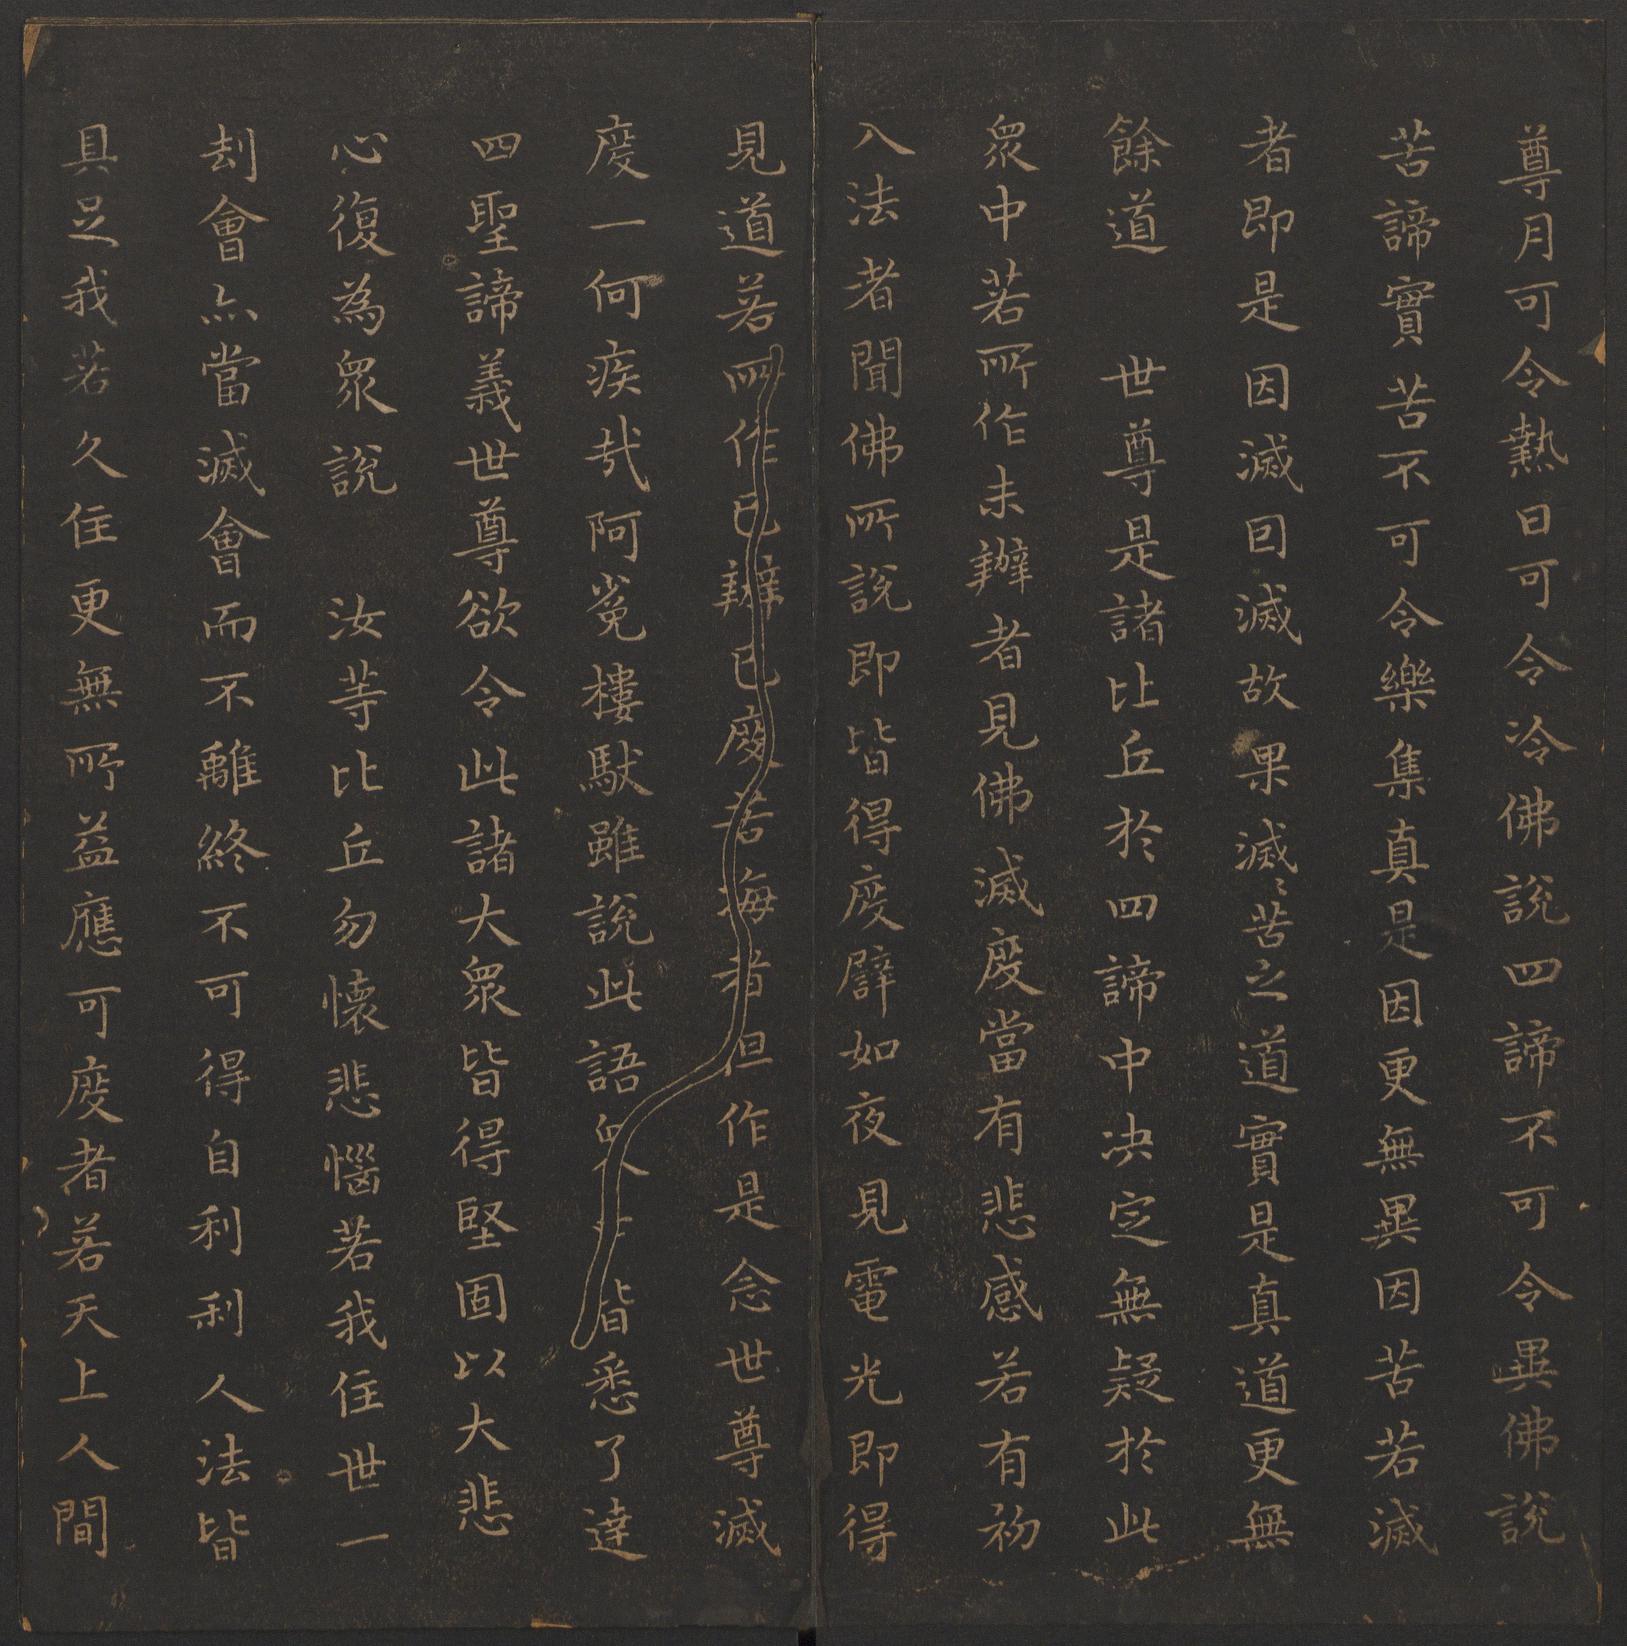 尊月可令熱日可令冷佛說四諦不可令異佛說
苦諦實苦不可令樂集真是因更無異因苦若滅
者即是因滅因滅故果滅滅苦之道實是真道更無
餘道　世尊是諸比丘於四諦中決定無疑於此
眾中若所作未辦者見佛滅度當有悲感若有初
入法者聞佛所說即皆得度譬如夜見電光即得
見道若所作已辦已度苦海者但作是念世尊滅
度一何疾哉阿㝹樓馱雖說此語眾皆悉了達
四聖諦義世尊欲令此諸大眾皆得堅固以大悲
心復為眾說　汝等比丘勿懷悲惱若我住世一
刦會亦當滅會而不離終不可得自利利人法皆
具足我若久住更無所益應可度者若天上人間